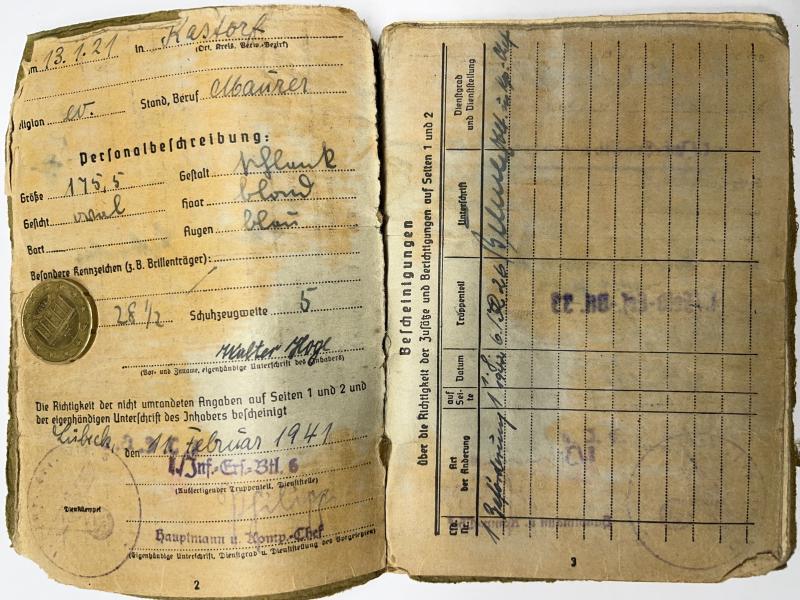 am 13.1.21 in Kastorf
(Ort, Kreis, Verw.-Bezirk)
Religion ev. Stand, Beruf Maurer
Personalbeschreibung:
Größe 175,5 Gestalt schlank
Gesicht oval Haar blond
Bart Augen blau
Besondere Kennzeichen (z. B. Brillenträger):
28 1/2 Schuhzeugweite 5
Walter
(Vor- und Zuname, eigenhändige Unterschrift des Inhabers)
Die Richtigkeit der nicht umrandeten Angaben auf Seiten 1 und 2 und
der eigenhändigen Unterschrift des Inhabers bescheinigt
Lübeck, den 11. Februar 1941
Inf.-Ers.-Btl. 6
(Ausfertigender Truppenteil, Dienststelle)
Dienststempel
Hauptmann u. Komp.-Chef
(Eigenhändige Unterschrift, Dienstgrad u. Dienststellung des Vorgesetzten)
2
Bescheinigungen
über die Richtigkeit der Zusätze und Berichtigungen auf Seiten 1 und 2
Lfd. Nr.
Art der Änderung
auf Seite
Datum
Truppenteil
Unterschrift
Dienstgrad und Dienststellung
1 Beförderung 1
3